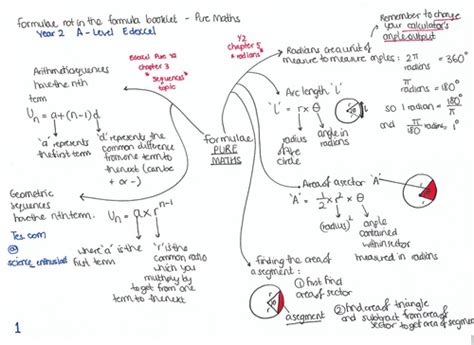 Formulae not in the formula booklet - Pure Maths
Year 2 A-Level Edexcel
Edexcel Pure Y2
chapter 3
* "sequences"
topic
Y2
chapter 5
* radians
Remember to change
your calculator's
angle output
Arithmetic sequences
have the nth
term
Un = a+(n-1)d
'a' represents
the first term
'd' represents the
common difference
from one term to
the next (can be
+ or -)
Geometric
sequences
have the nth term.
Un = axr^n-1
where 'a' is the
first term
'r' is the
common ratio
which you
multiply by
to get from one
term to the next
Tes.com
@
science_enthusiast
formulae
PURE
MATHS
Radians are a unit of
measure to measure angles:
2π radians = 360°
so 1 radian = 180°/π
and π/180 radians = 1°
Arc length 'l'
'l' = r x θ
radius
of the
circle
angle in
radians
Area of a sector 'A'
'A' = 1/2 x r² x θ
(radius)²
angle
contained
within sector
measured in radians
finding the area of
a segment:
① first find
area of sector
a segment
② find area of triangle
and subtract from area of
sector to get area of segment
1